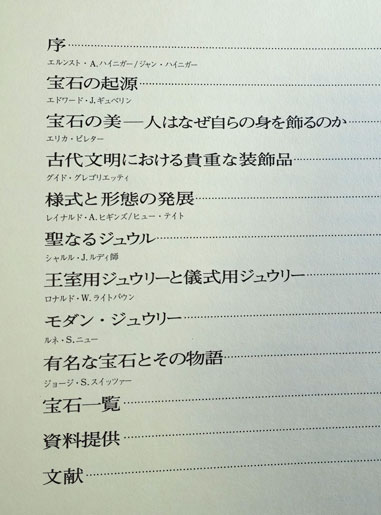 序
エルンスト・A.ハイニガー/ジャン・ハイニガー
宝石の起源
エドワード・J.ギュベリン
宝石の美──人はなぜ自らの身を飾るのか
エリカ・ビレター
古代文明における貴重な装飾品
グイド・グレゴリエッティ
様式と形態の発展
レイナルド・A.ヒギンズ/ヒュー・テイト
聖なるジュウル
シャルル・J.ルディ師
王室用ジュウリーと儀式用ジュウリー
ロナルド・W.ライトバウン
モダン・ジュウリー
ルネ・S.ニュー
有名な宝石とその物語
ジョージ・S.スイッツァー
宝石一覧
資料提供
文献